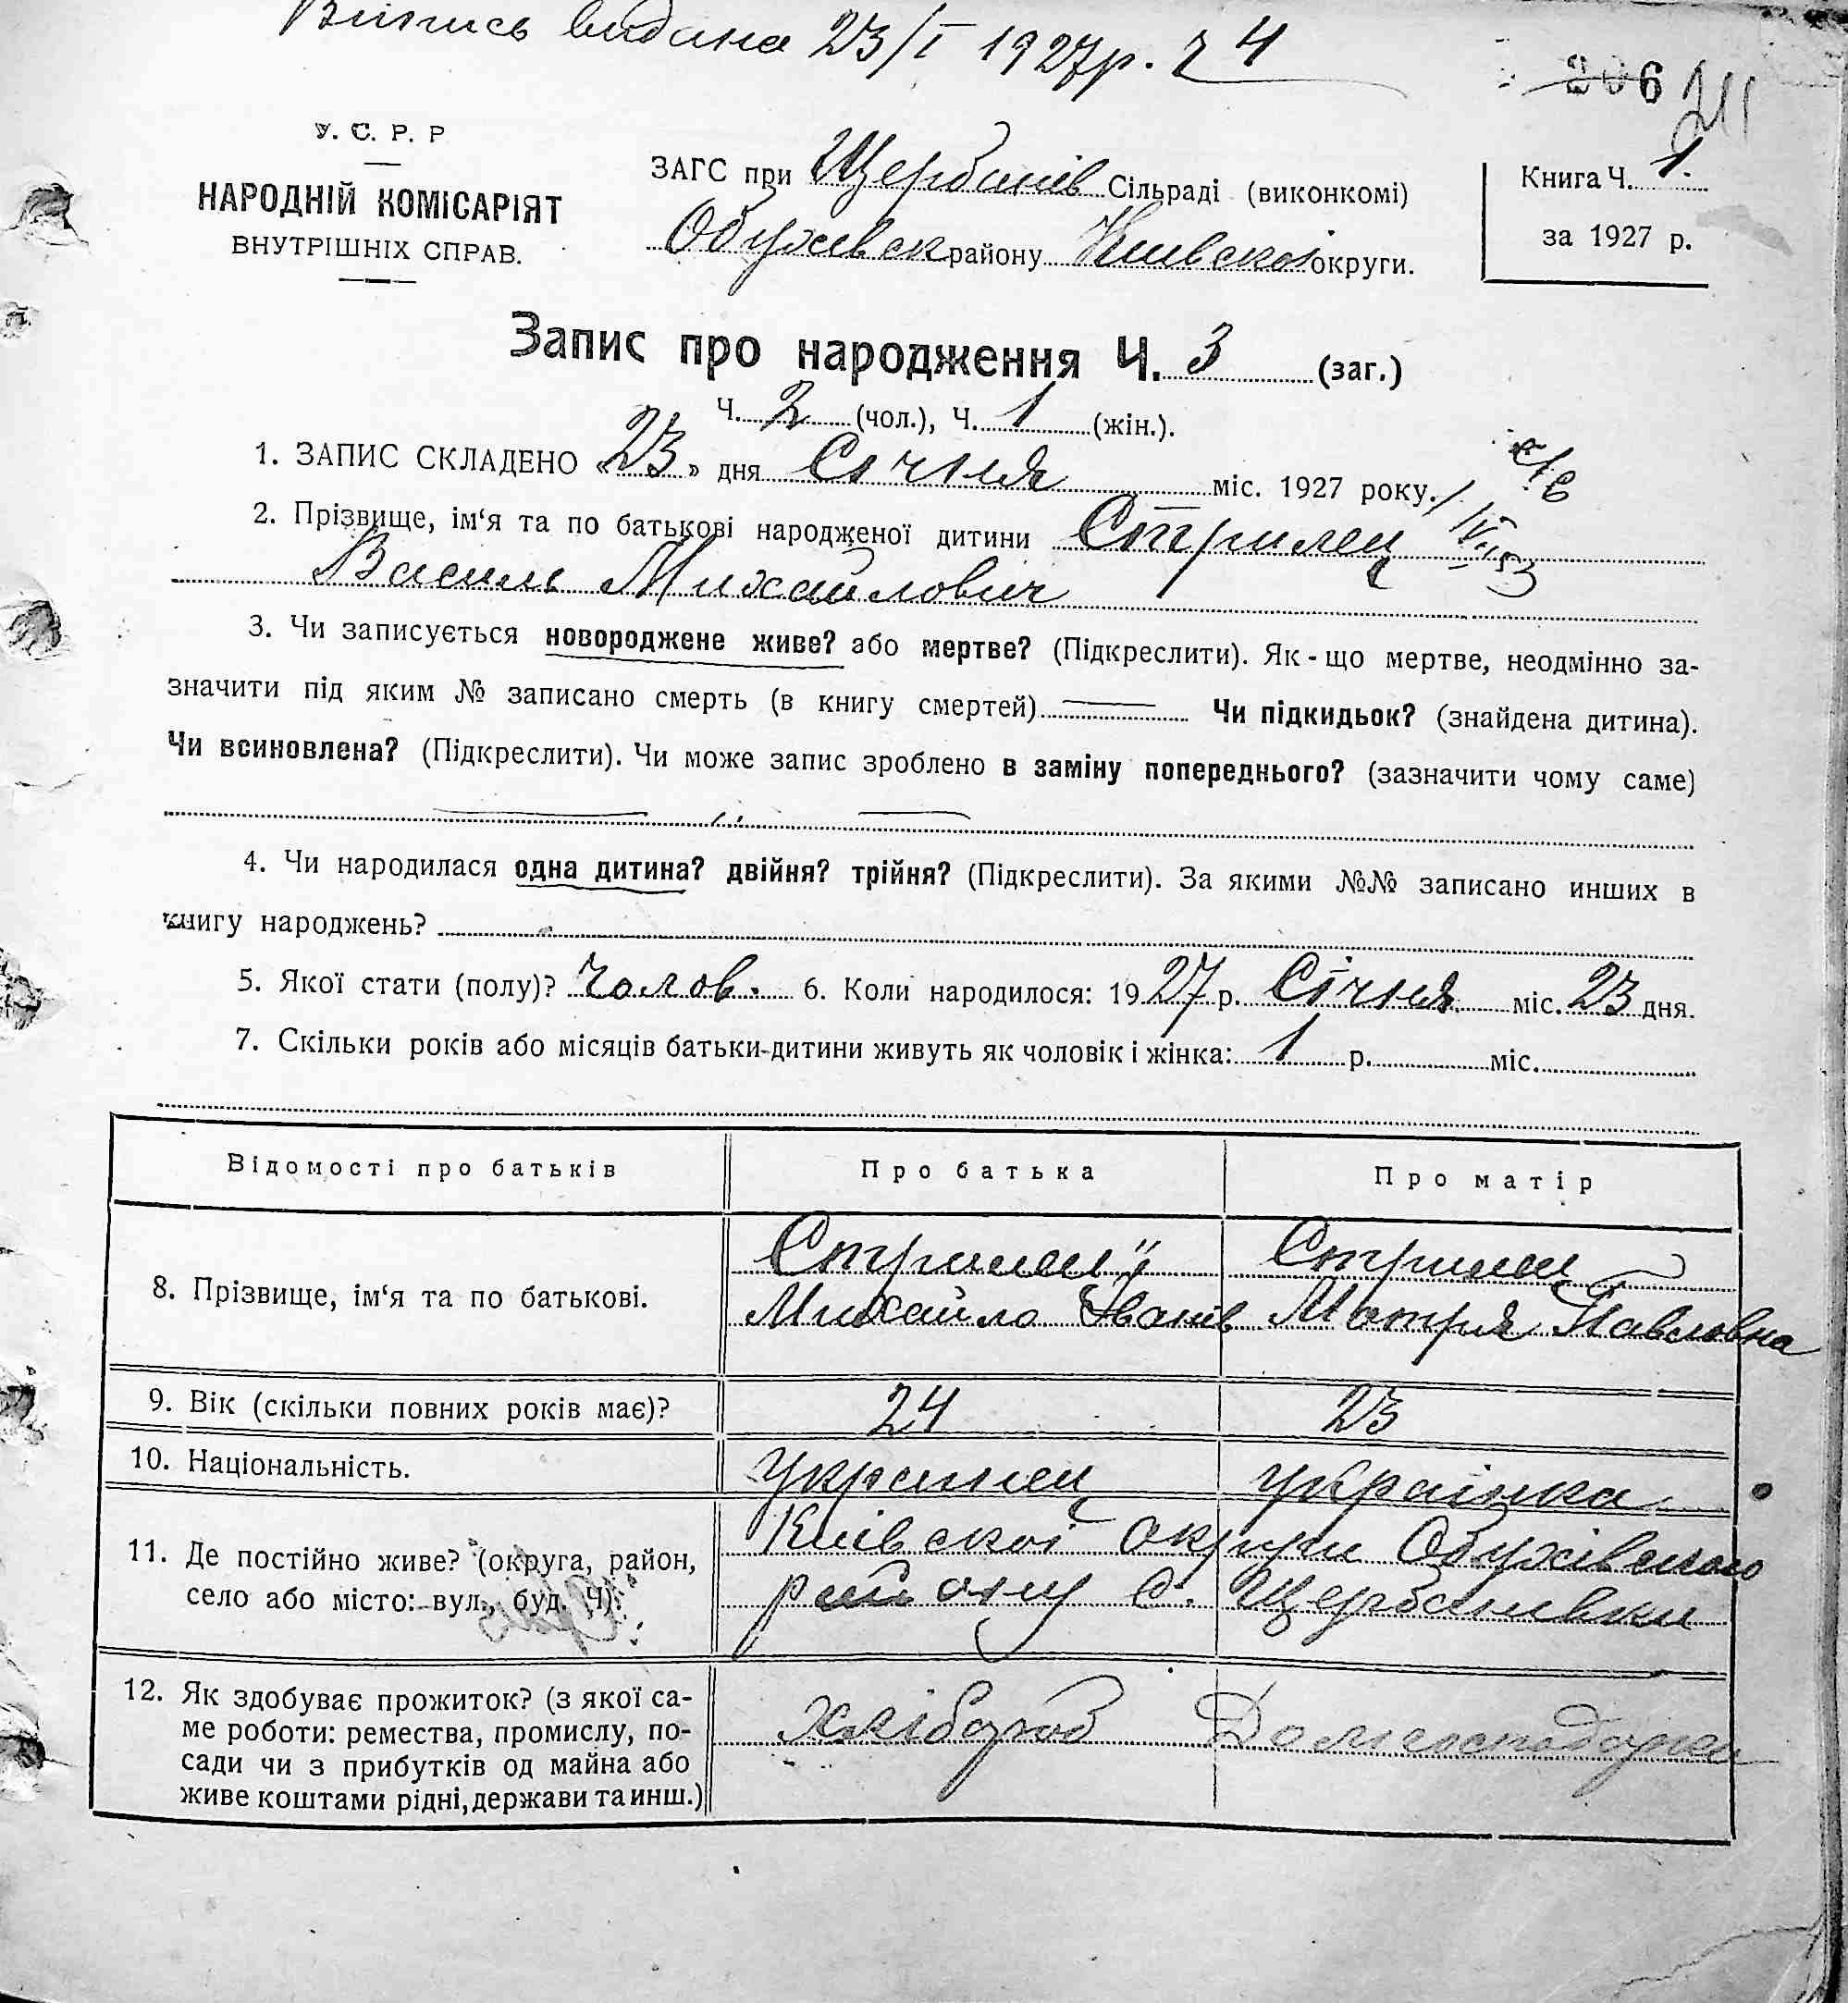 Випись видана 23/I 1927р. 24
206 211
У. С. Р. Р
НАРОДНІЙ КОМІСАРІЯТ
ВНУТРІШНІХ СПРАВ.
ЗАГС при Щербанів Сільраді (виконкомі)
Обухівск району Київскоі округи.
Книга Ч. 1.
за 1927 р.
Запис про народження Ч. 3 (заг.)
Ч. 2 (чол.), Ч. 1 (жін.).
1. ЗАПИС СКЛАДЕНО «23» дня Січня міс. 1927 року.
2. Прізвище, ім‘я та по батькові народженої дитини Стрилец
Василь Михайлович
3. Чи записується новороджене живе? або мертве? (Підкреслити). Як-що мертве, неодмінно за-
значити під яким № записано смерть (в книгу смертей) Чи підкидьок? (знайдена дитина).
Чи всиновлена? (Підкреслити). Чи може запис зроблено в заміну попереднього? (зазначити чому саме)
4. Чи народилася одна дитина? двійня? трійня? (Підкреслити). За якими №№ записано инших в
книгу народжень?
5. Якої стати (полу)? Чолов. 6. Коли народилося: 1927 р. Січня міс. 23 дня.
7. Скільки років або місяців батьки-дитини живуть як чоловік і жінка: 1 р. міс.
Відомості про батьків Про батька Про матір
8. Прізвище, ім‘я та по батькові.
Стрилец Стрилец
Михайло Іванів Мотря Павловна
9. Вік (скільки повних років має)? 24 23
10. Національність. Украинец українка
11. Де постійно живе? (округа, район,
село або місто: вул., буд. Ч).
Київскоі округи Обухівского
району с. Щербанивки
12. Як здобуває прожиток? (з якої са-
ме роботи: ремества, промислу, по-
сади чи з прибутків од майна або
живе коштами рідні, держави та инш.)
хлібороб Домогосподарка